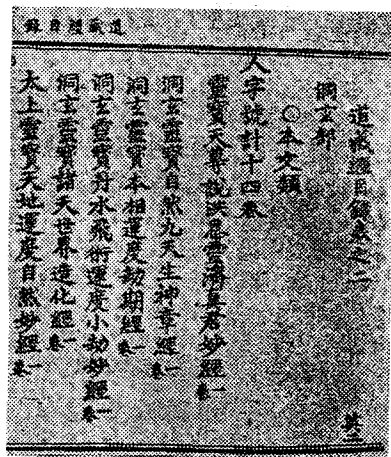 道藏經目錄
道藏經目錄卷之二
洞玄部
○本文類
人字號計十四卷
靈寶天尊說洪恩靈濟真君妙經一卷
洞玄靈寶自然九天生神章經一卷
洞玄靈寶本相運度劫期經一卷
洞玄靈寶丹水飛術運度小劫妙經一卷
洞玄靈寶諸天世界造化經一卷
太上靈寶天地運度自然妙經一卷